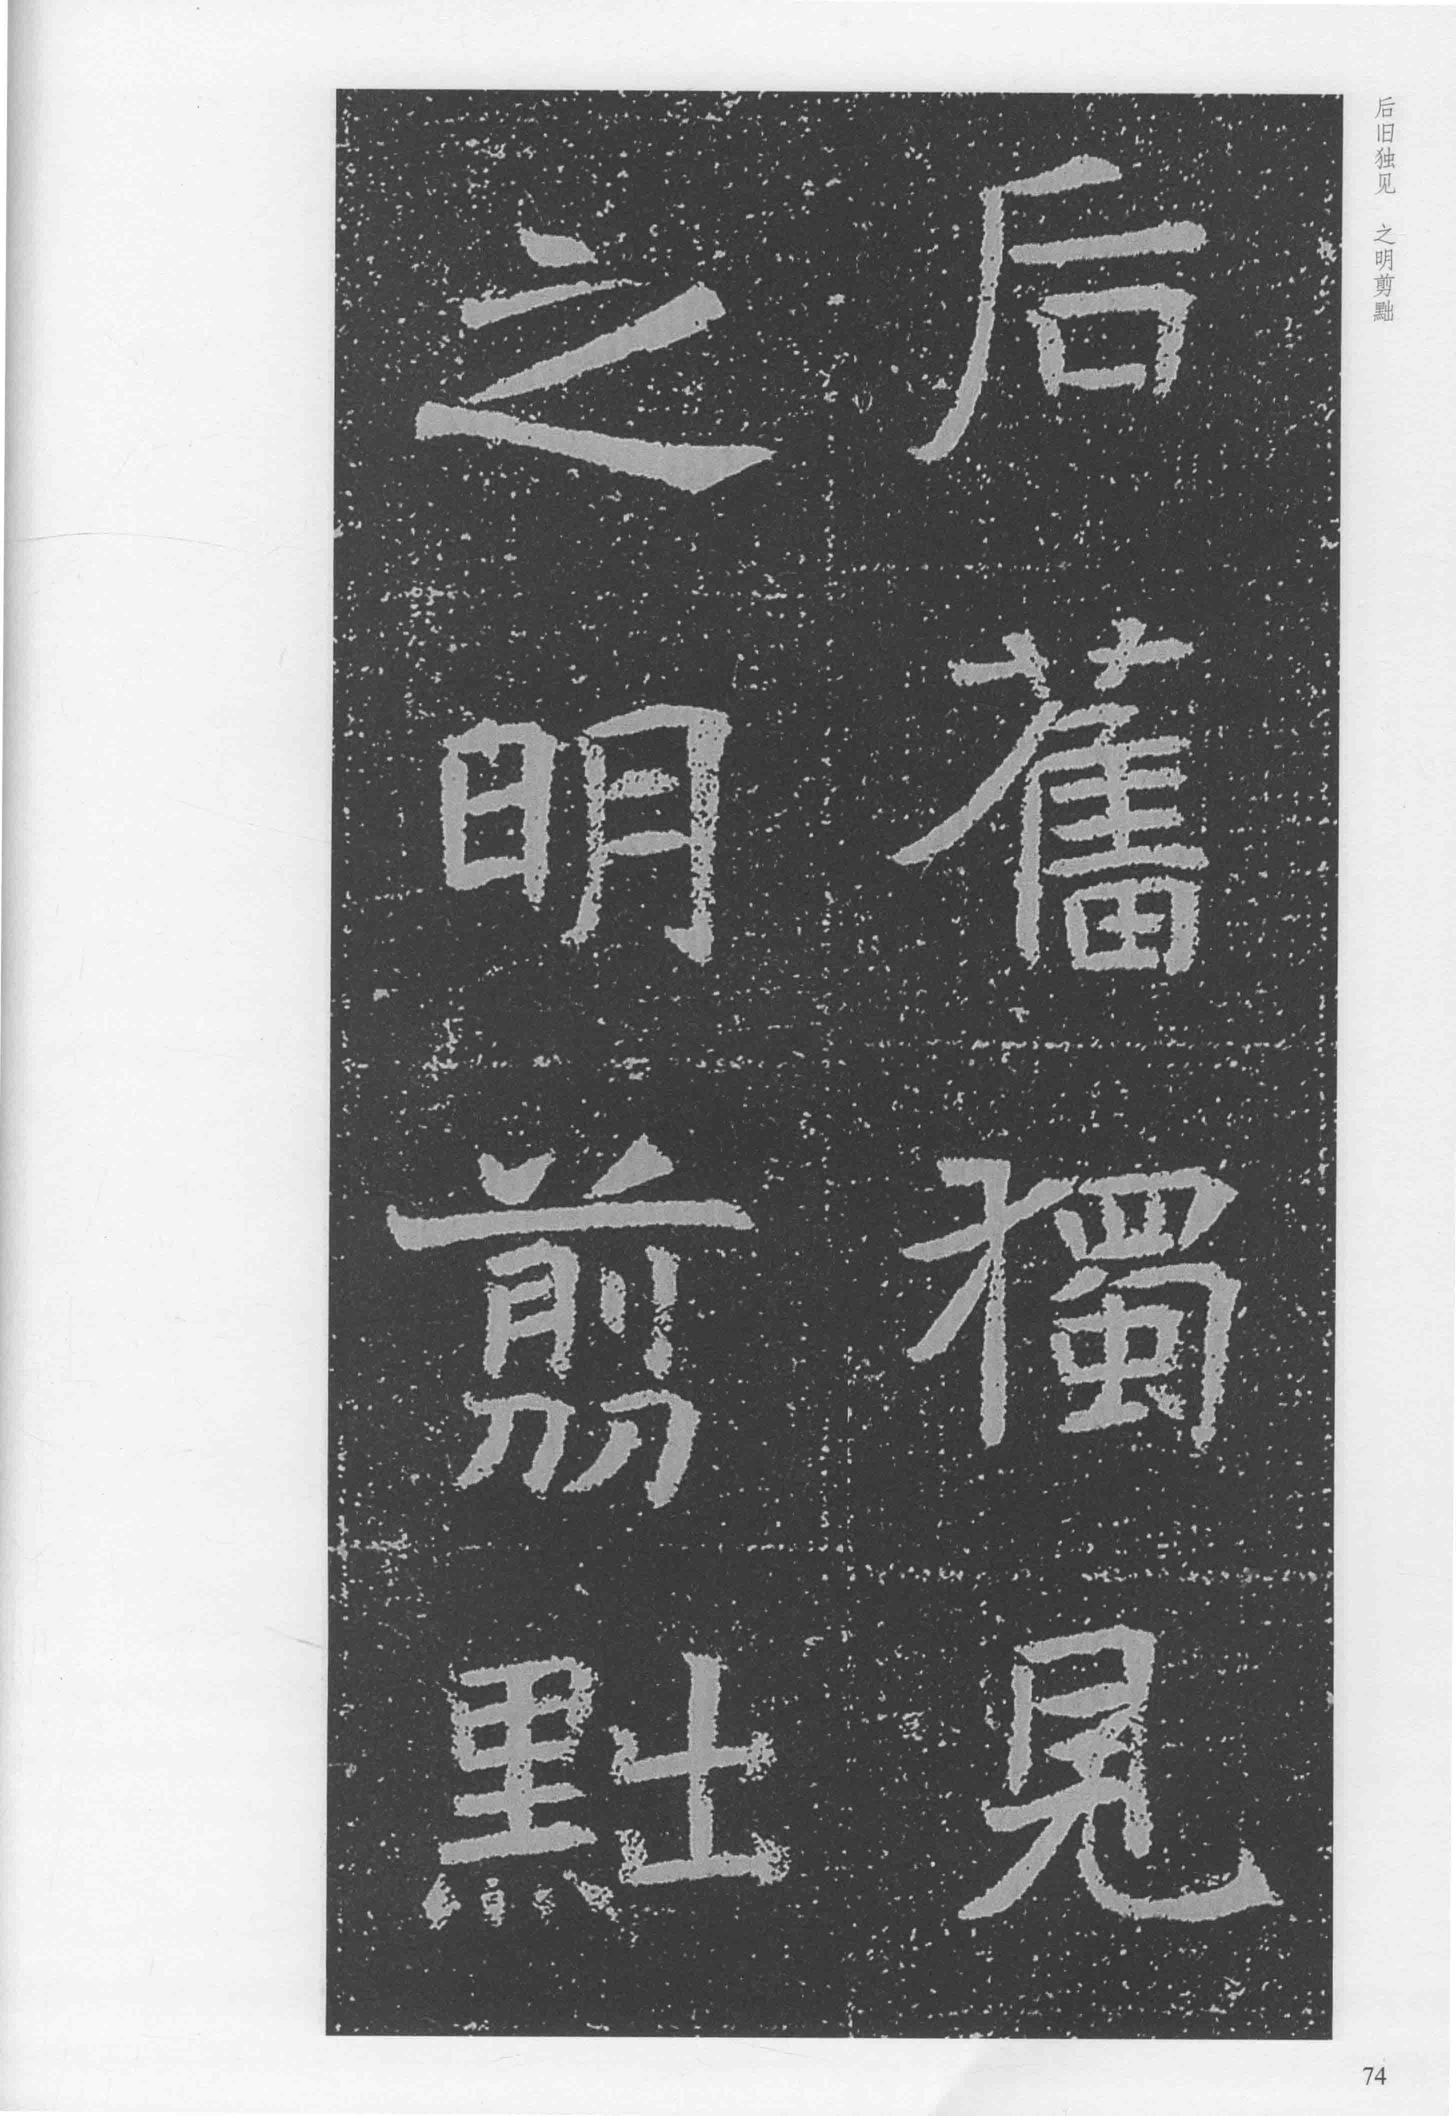 后旧独见　之明剪黜
后舊獨見
之明剪黜
74